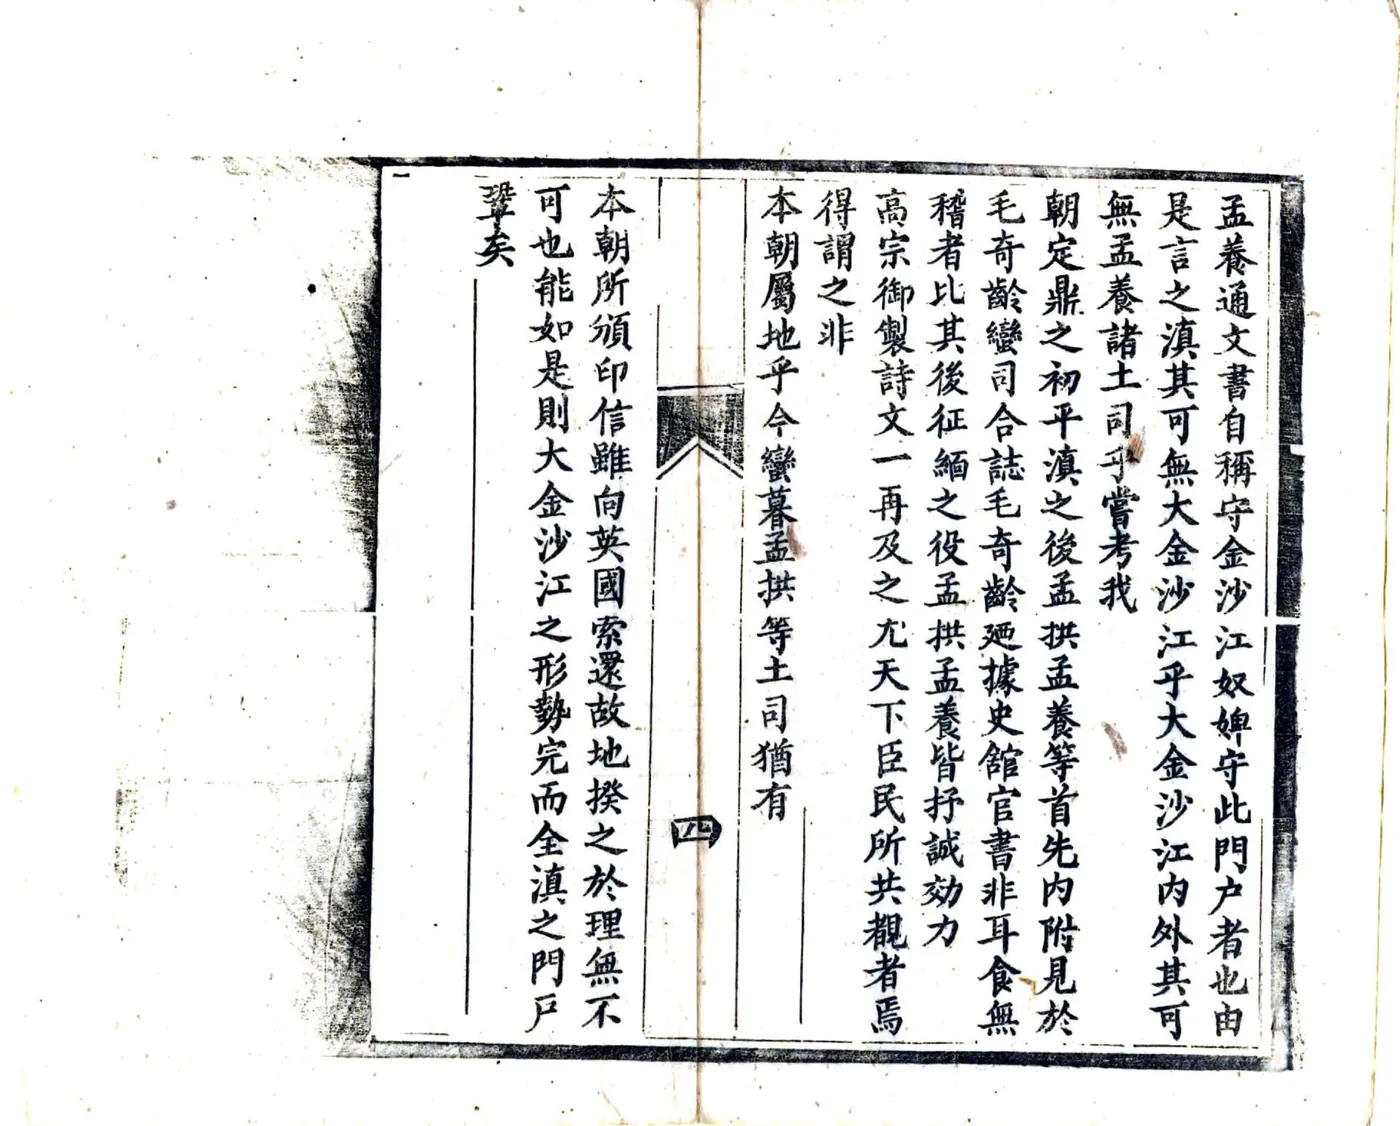 孟養通文書自稱守金沙江奴婢守此門户者也由
是言之滇其可無大金沙江乎大金沙江内外其可
無孟養諸土司乎嘗考我
朝定鼎之初平滇之後孟拱孟養等首先内附見於
毛奇齡蠻司合誌毛奇齡廼據史舘官書非耳食無
稽者比其後征緬之役孟拱孟養皆抒誠効力
高宗御製詩文一再及之尤天下臣民所共覩者焉
得謂之非
本朝屬地乎今蠻暮孟拱等土司猶有
四
本朝所頒印信雖向英國索還故地揆之於理無不
可也能如是則大金沙江之形勢完而全滇之門戶
鞏矣